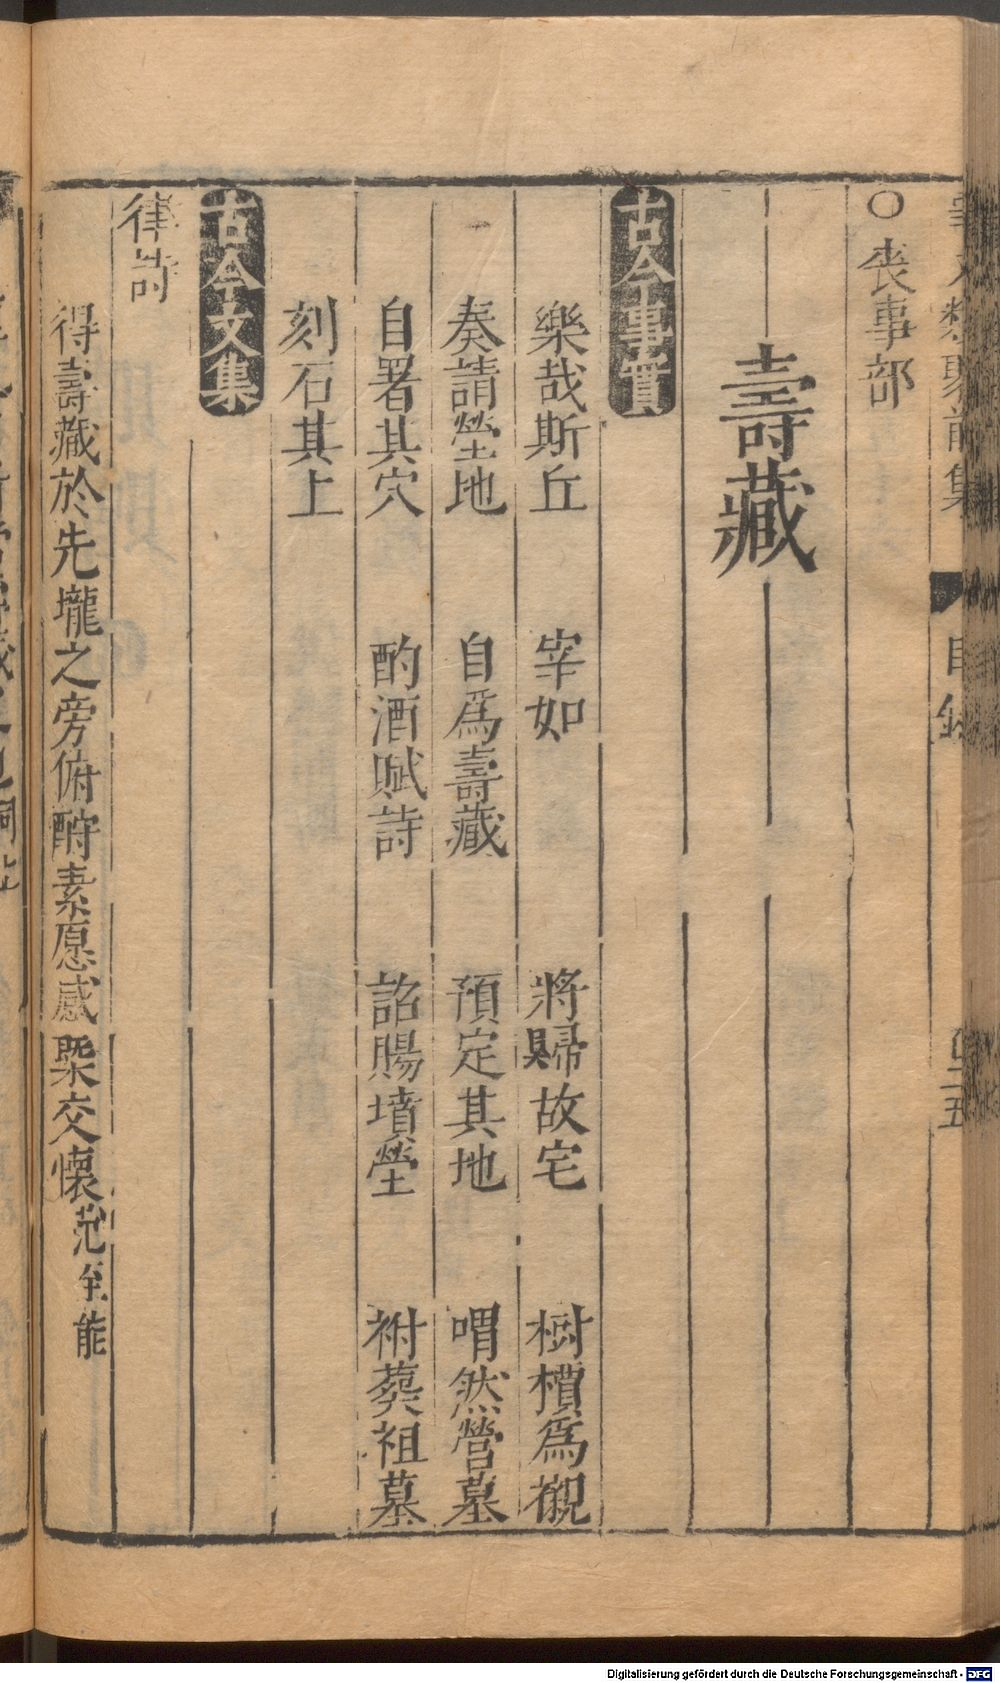 ○喪事部
壽藏
古今事實
樂哉斯丘 宰如 將歸故宅 樹檟爲櫬
奏請塋地 自爲壽藏 預定其地 喟然營墓
自署其穴 酌酒賦詩 詔賜墳塋 祔葬祖墓
刻石其上
古今文集
律詩
得壽藏於先壠之旁俯酹素愿感槩交懷范至能
Digitalisierung gefördert durch die Deutsche Forschungsgemeinschaft - DFG